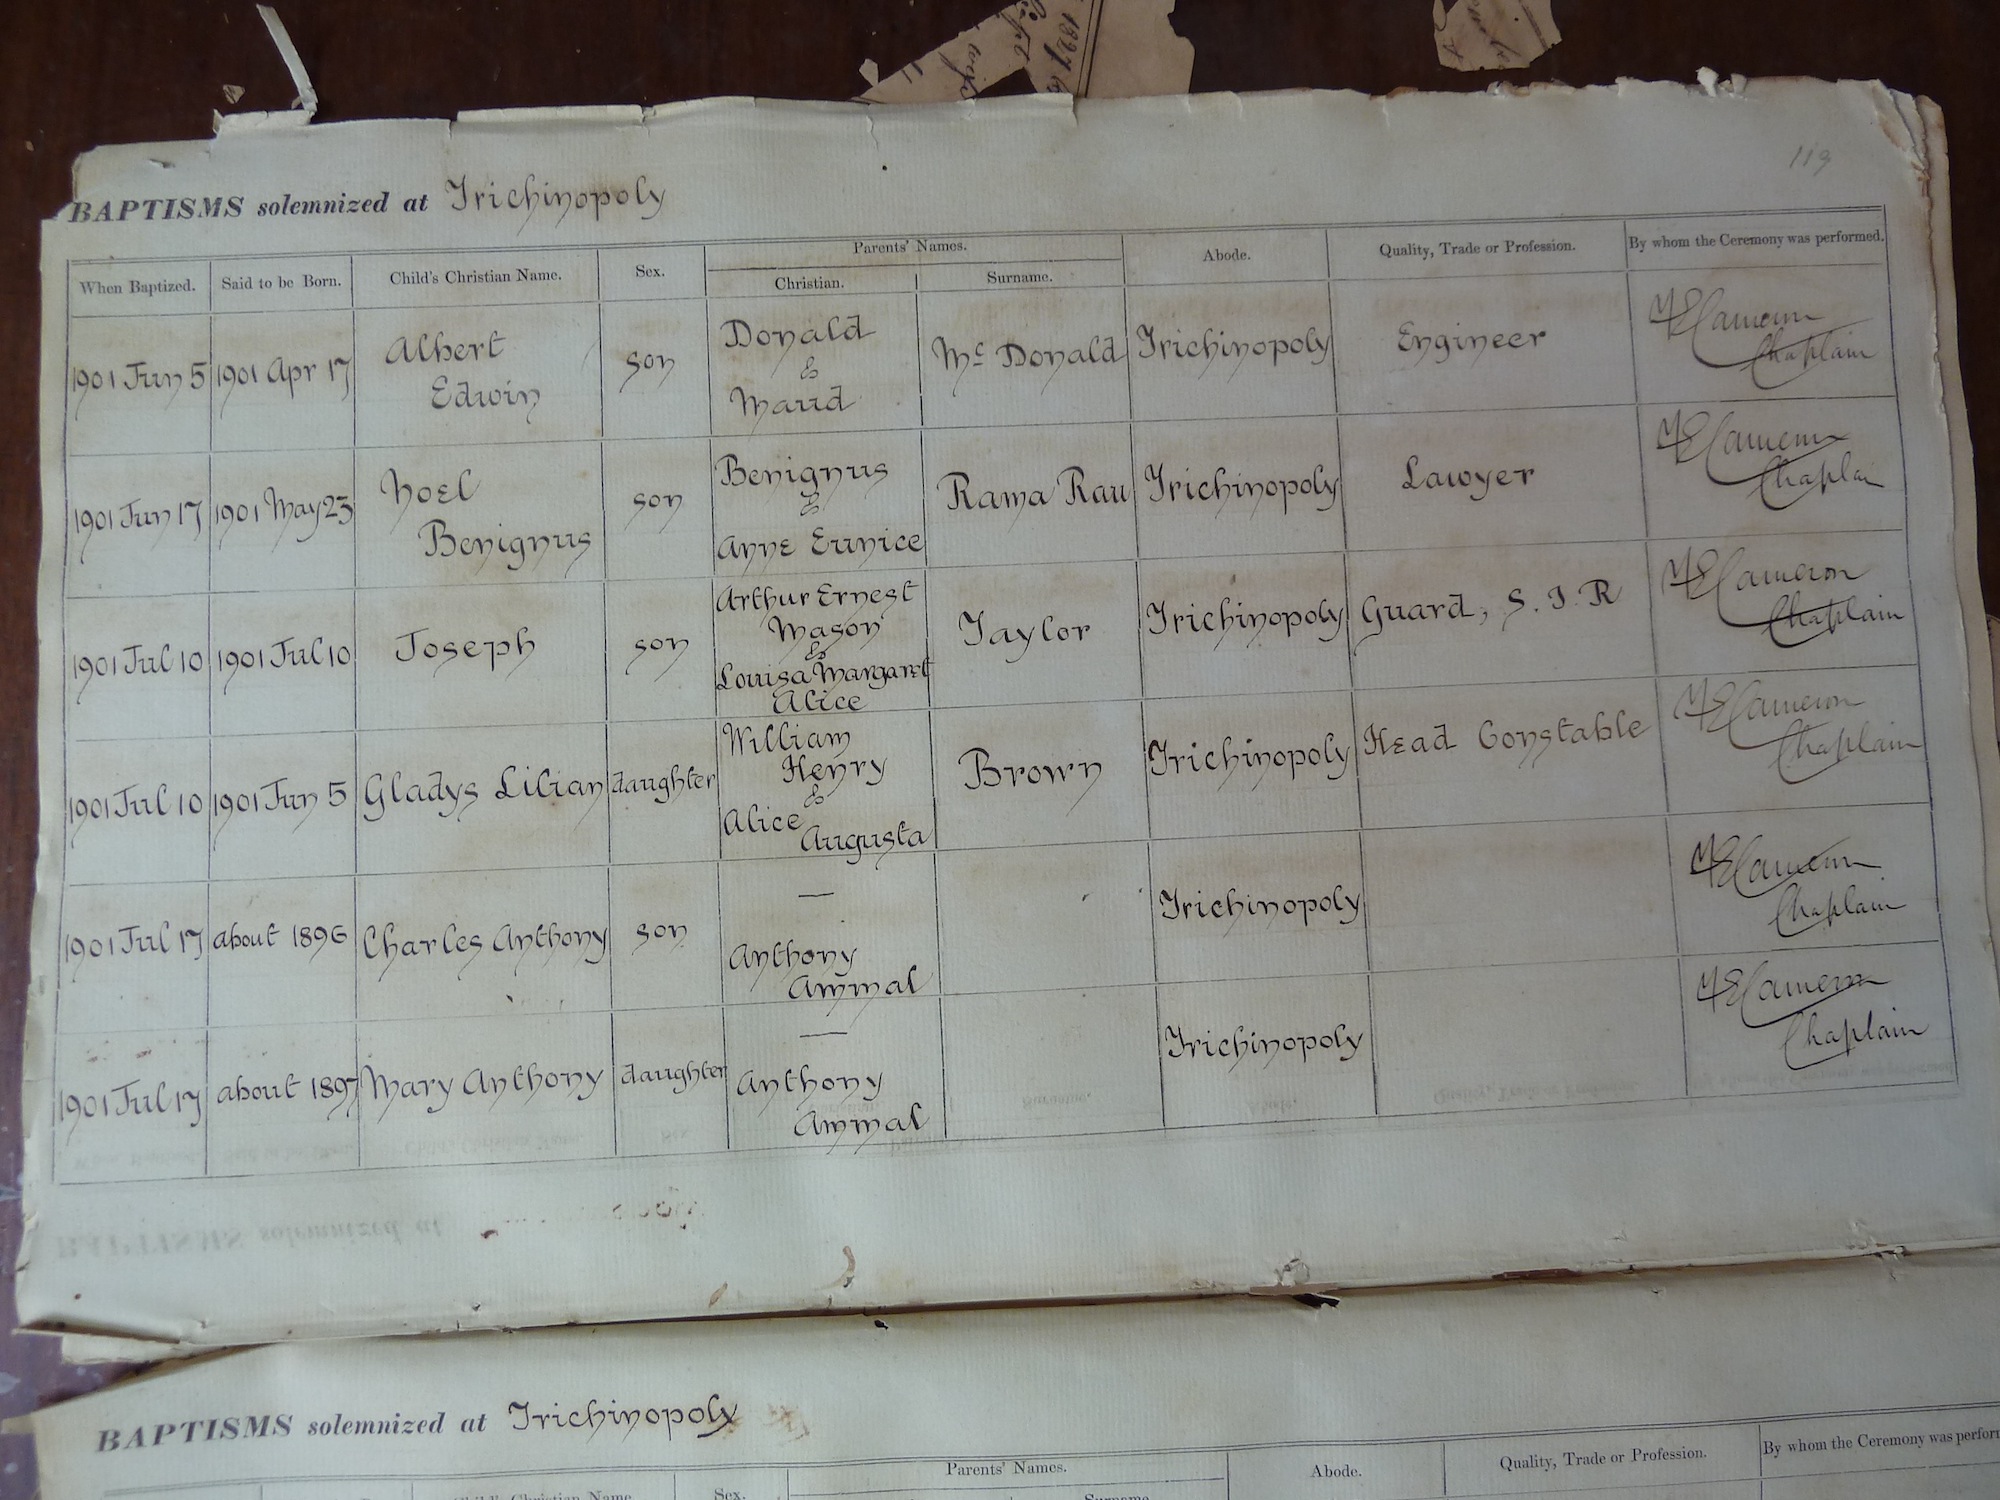 119
BAPTISMS solemnized at Trichinopoly
When Baptized. Said to be Born. Child's Christian Name. Sex. Parents' Names. Abode. Quality, Trade or Profession. By whom the Ceremony was performed.
Christian. Surname.
1901 Jun 5 1901 Apr 17 Albert Edwin son Donald & Maud McDonald Trichinopoly Engineer Cameron Chaplain
1901 Jun 17 1901 May 23 Noel Benignus son Benignus & Anne Eunice Rama Rau Trichinopoly Lawyer Cameron Chaplain
1901 Jul 10 1901 Jul 10 Joseph son Arthur Ernest Mason & Louisa Margaret Alice Taylor Trichinopoly Guard, S. I. R Cameron Chaplain
1901 Jul 10 1901 Jun 5 Gladys Lilian daughter William Henry & Alice Augusta Brown Trichinopoly Head Constable Cameron Chaplain
1901 Jul 17 about 1896 Charles Anthony son — Anthony Ammal Trichinopoly Cameron Chaplain
1901 Jul 17 about 1897 Mary Anthony daughter — Anthony Ammal Trichinopoly Cameron Chaplain
BAPTISMS solemnized at Trichinopoly
Parents' Names. Abode. Quality, Trade or Profession. By whom the Ceremony was perform
Child's Christian Name Sex. Surname